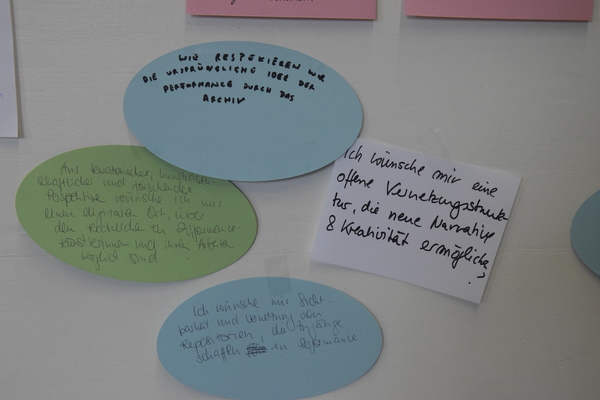 WIE RESPEKIEREN WIR
DIE URSPRÜNGLICHE IDEE DER
PERFORMANCE DURCH DAS
ARCHIV
Aus kuratorischer, kunstwissen-
schaftlicher und forschender
Perspektive wünsche ich mir
einen digitalen Ort, wo
den Recherche zu Performance-
künstlerinnen und ihren Arbeiten
möglich sind
Ich wünsche mir eine
offene Vernetzungsstruk
tur, die neue Narrative
& Kreativität ermögliche
Ich wünsche mir Sicht-
barkeit und Vernetzung von
Repositorien, die Zugänge
schaffen in Performance